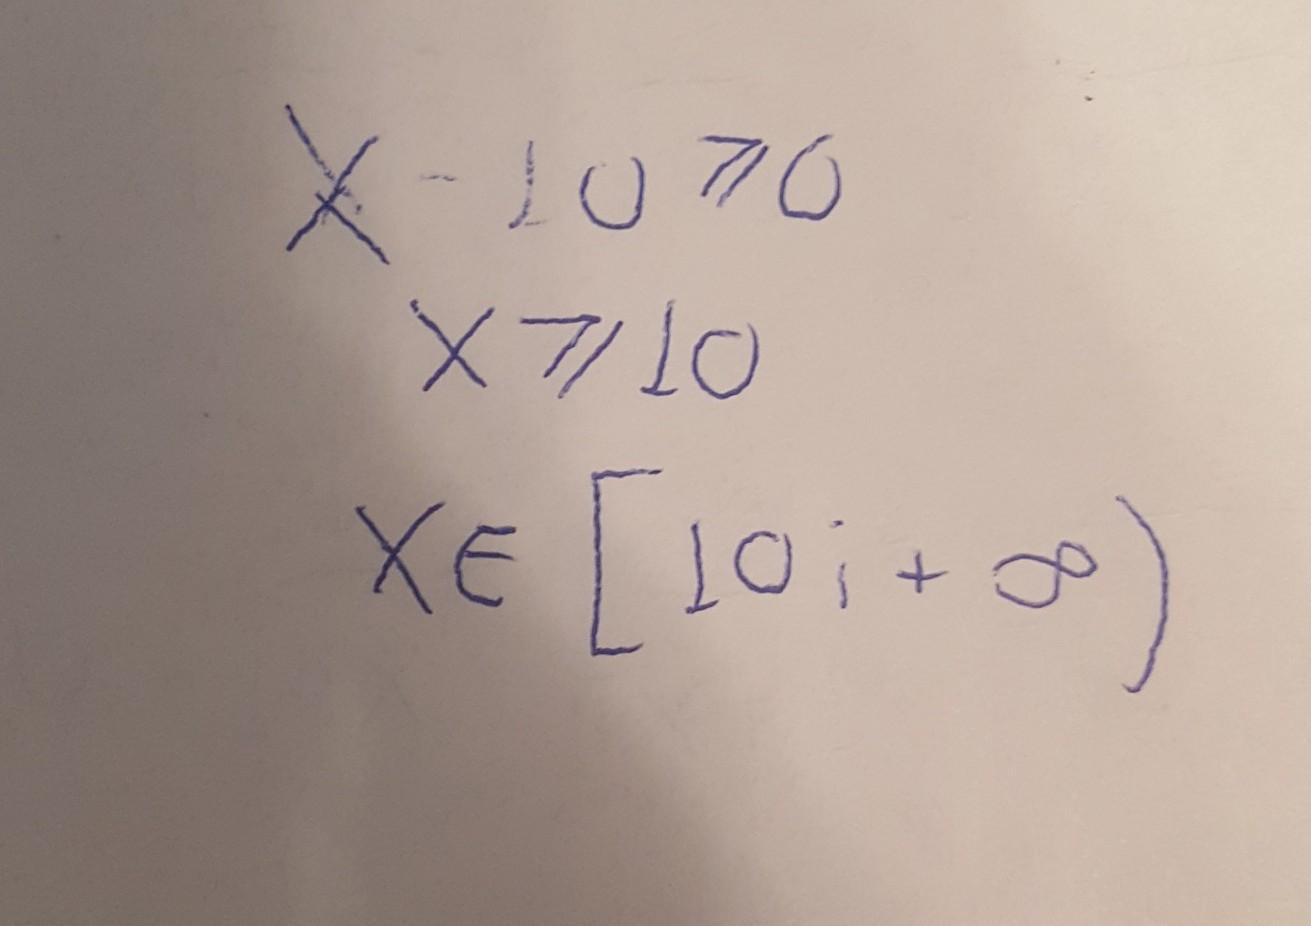 X - 10 ⩾ 0
X ⩾ 10
X ∈ [10; + ∞)